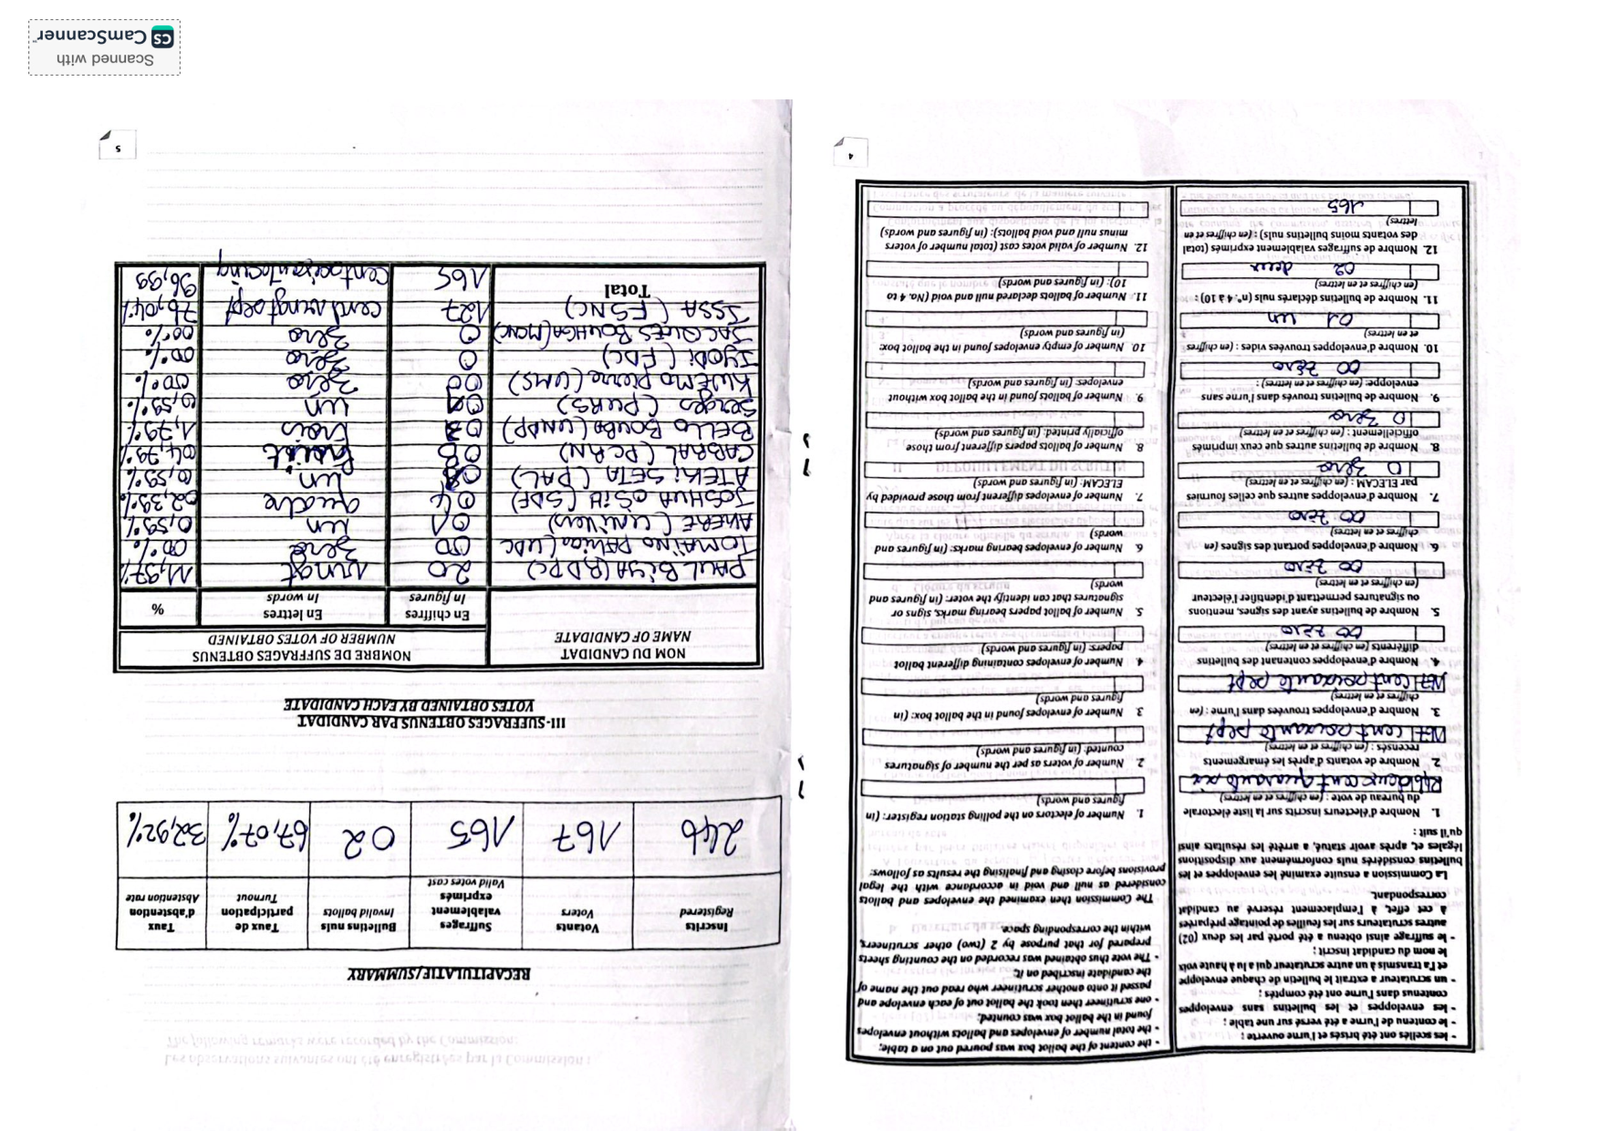 - les scellés ont été brisés et l'urne ouverte :
- le contenu de l'urne a été versé sur une table ;
- les enveloppes et les bulletins sans enveloppes
contenus dans l'urne ont été comptés ;
- un scrutateur a extrait le bulletin de chaque enveloppe
et l'a transmis à un autre scrutateur qui a lu à haute voix
le nom du candidat inscrit ;
- le suffrage ainsi obtenu a été porté par les deux (02)
autres scrutateurs sur les feuilles de pointage préparées
à cet effet, à l'emplacement réservé au candidat
correspondant.
La Commission a ensuite examiné les enveloppes et les
bulletins considérés nuls conformément aux dispositions
légales et, après avoir statué, a arrêté les résultats ainsi
qu'il suit :
1. Nombre d'électeurs inscrits sur la liste électorale
du bureau de vote : (en chiffres et en lettres)
246 deux cent quarante six
2. Nombre de votants d'après les émargements
recensés : (en chiffres et en lettres)
167 cent soixante sept
3. Nombre d'enveloppes trouvées dans l'urne : (en
chiffres et en lettres)
167 cent soixante sept
4. Nombre d'enveloppes contenant des bulletins
différents (en chiffres et en lettres)
00 zéro
5. Nombre de bulletins ayant des signes, mentions
ou signatures permettant d'identifier l'électeur
(en chiffres et en lettres)
00 zéro
6. Nombre d'enveloppes portant des signes (en
chiffres et en lettres)
00 zéro
7. Nombre d'enveloppes autres que celles fournies
par ELECAM : (en chiffres et en lettres)
10 zéro
8. Nombre de bulletins autres que ceux imprimés
officiellement : (en chiffres et en lettres)
10 zéro
9. Nombre de bulletins trouvés dans l'urne sans
enveloppe: (en chiffres et en lettres) :
00 zéro
10. Nombre d'enveloppes trouvées vides : (en chiffres
et en lettres)
01 un
11. Nombre de bulletins déclarés nuls (n°. 4 à 10) :
(en chiffres et en lettres)
02 deux
12. Nombre de suffrages valablement exprimés (total
des votants moins bulletins nuls) : (en chiffres et en
lettres)
165
- the content of the ballot box was poured out on a table;
- the total number of envelopes and ballots without envelopes
found in the ballot box was counted;
- one scrutineer then took the ballot out of each envelope and
passed it onto another scrutineer who read out the name of
the candidate inscribed on it;
- The vote thus obtained was recorded on the counting sheets
prepared for that purpose by 2 (two) other scrutineers,
within the corresponding space.
The Commission then examined the envelopes and ballots
considered as null and void in accordance with the legal
provisions before closing and finalising the results as follows:
1. Number of electors on the polling station register: (in
figures and words)
2. Number of voters as per the number of signatures
counted: (in figures and words)
3. Number of envelopes found in the ballot box: (in
figures and words)
4. Number of envelopes containing different ballot
papers: (in figures and words)
5. Number of ballot papers bearing marks, signs or
signatures that can identify the voter: (in figures and
words)
6. Number of envelopes bearing marks: (in figures and
words)
7. Number of envelopes different from those provided by
ELECAM: (in figures and words)
8. Number of ballots papers different from those
officially printed: (in figures and words)
9. Number of ballots found in the ballot box without
envelopes: (in figures and words)
10. Number of empty envelopes found in the ballot box:
(in figures and words)
11. Number of ballots declared null and void (No. 4 to
10): (in figures and words)
12. Number of valid votes cast (total number of voters
minus null and void ballots): (in figures and words)
4
RECAPITULATIF/SUMMARY
Inscrits Registered | Votants Voters | Suffrages valablement exprimés Valid votes cast | Bulletins nuls Invalid ballots | Taux de participation Turnout | Taux d'abstention Abstention rate
246 167 165 02 67,07% 32,92%
III- SUFFRAGES OBTENUS PAR CANDIDAT
VOTES OBTAINED BY EACH CANDIDATE
NOM DU CANDIDAT NOMBRE DE SUFFRAGES OBTENUS
NAME OF CANDIDATE NUMBER OF VOTES OBTAINED
En chiffres En lettres %
In figures In words
PAUL BIYA (RDPC) 20 vingt 11,97%
TOMAÏNO (UDC 00 zéro 00%
(UNIVERS) 01 un 0,59%
JOSHUA OSIH (SDF) 04 quatre 02,39%
ATEKI SETA (PAL) 01 un 0,59%
CABRAL (PCRN) 08 huit 04,79%
BELLO BOUBA (UNDP) 03 trois 1,79%
Serges (PURS) 01 un 0,59%
KWEMO Pierre (UMS) 00 zéro 00%
IYODI (FDC) 0 zéro 00%
JACQUES BOUHGA (MCNC) 0 zéro 00%
ISSA (FSNC) 127 cent vingt sept 76,04%
Total 165 cent soixante cinq 96,99
5
Scanned with
CS CamScanner™